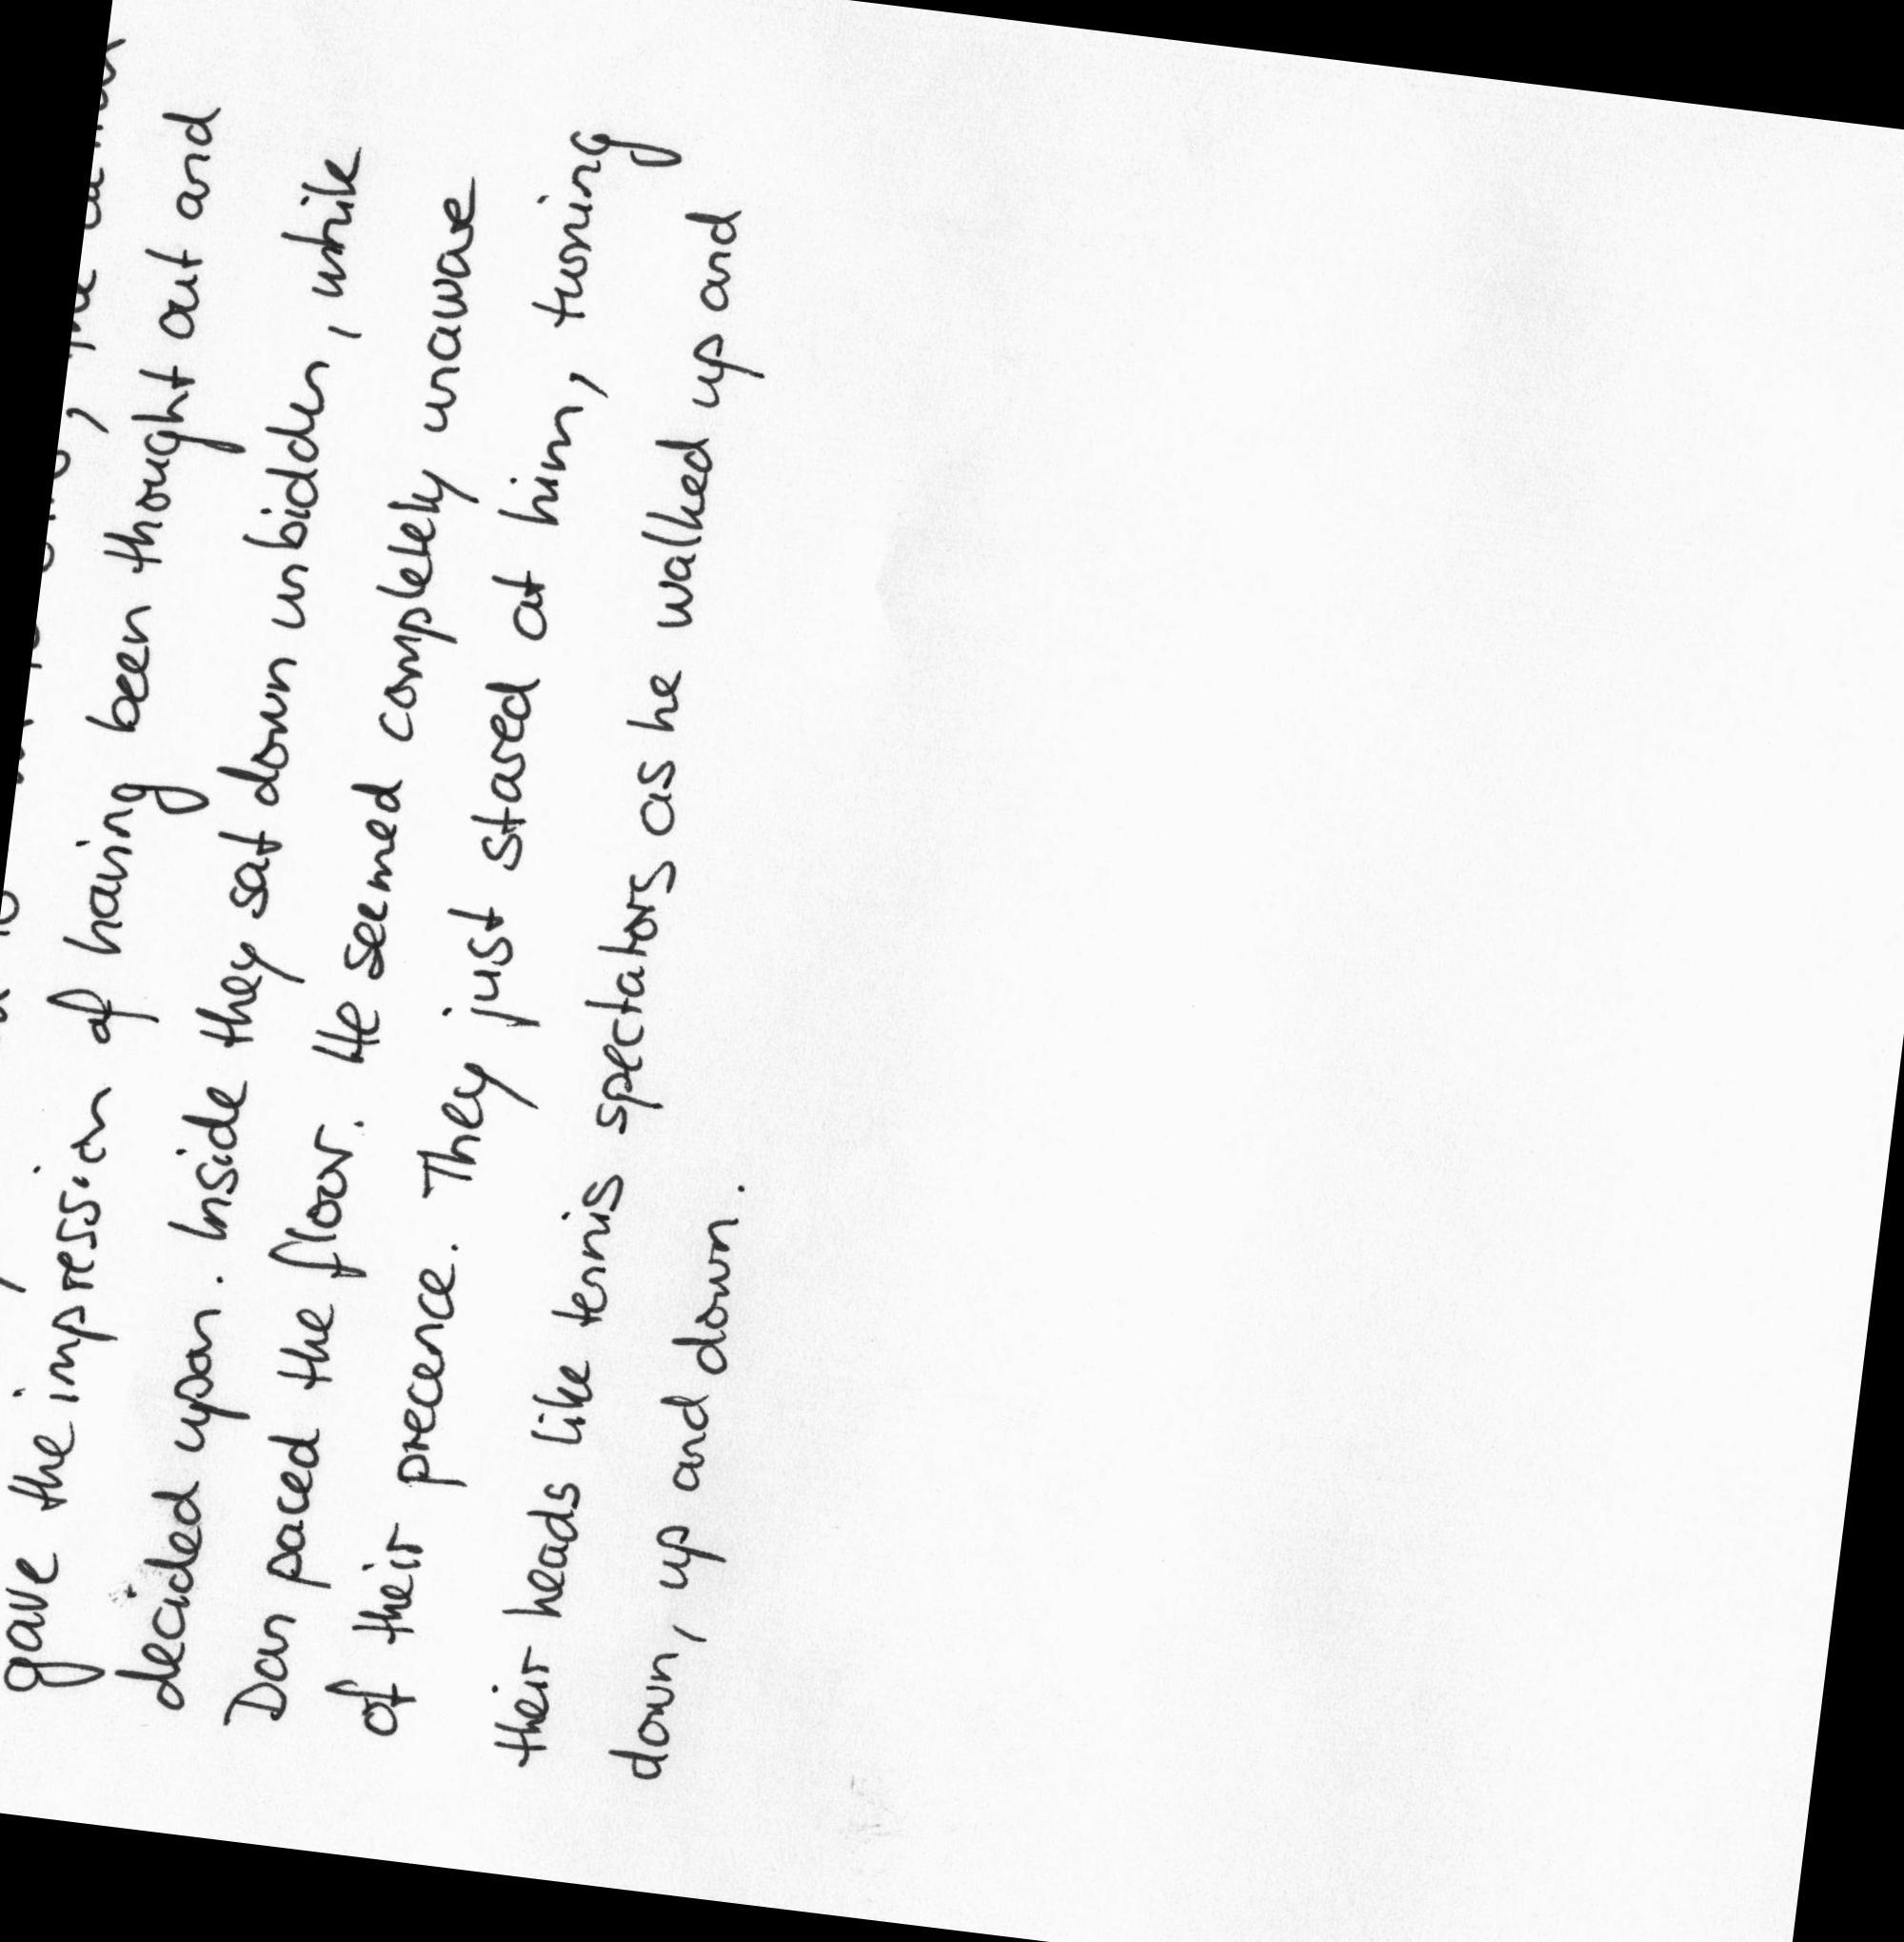 gave the impression of having been thought out and
decided upon. Inside they sat down unbidden, while
Dan paced the floor. He seemed completely unaware
of their precence. They just stared at him, turning
their heads like tennis spectators as he walked up and
down, up and down.